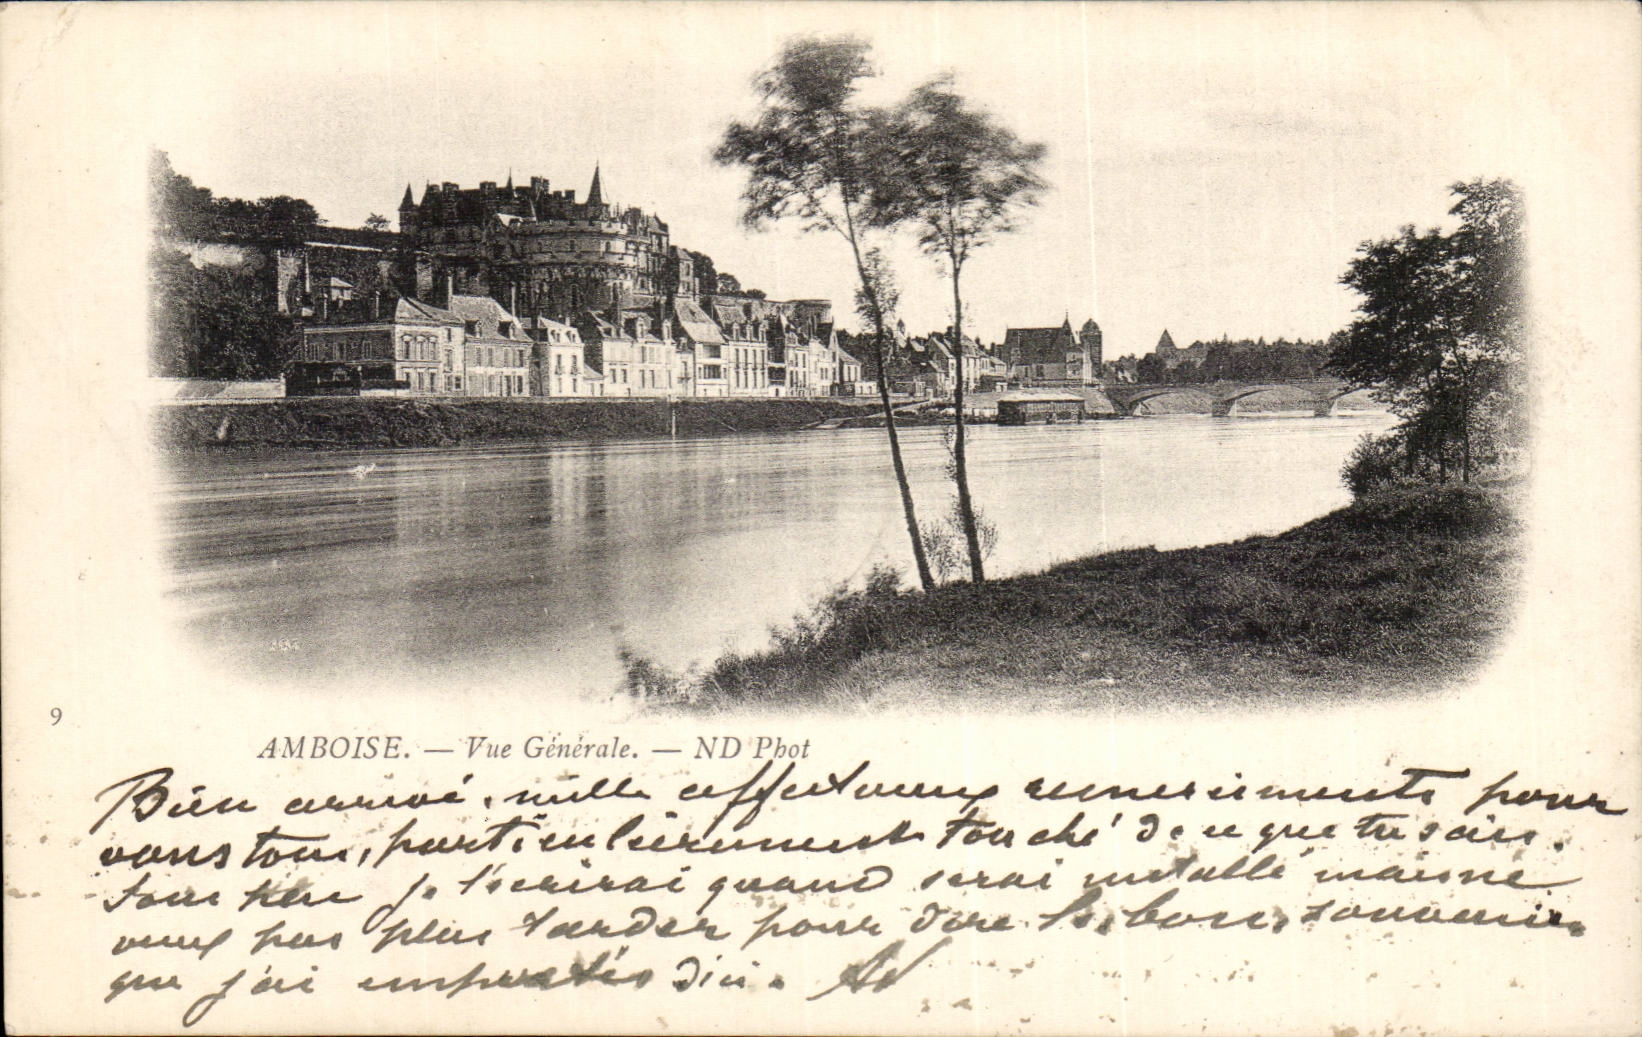 9
AMBOISE. — Vue Générale. — ND Phot
Bien arrivé, mille affectueux remerciements pour
vous tous, particulièrement touché de ce que tu sais.
t'écrirai quand serai installé mais ne
veux pas plus tarder pour dire les bons souvenirs
que j'ai emportés d'ici.